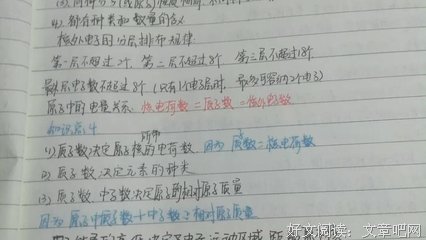 (3) 同种分子(或原子)
(4) 都有种类和数量的含义
核外电子的分层排布规律
第一层不超过2个, 第二层不超过8个 第三层不超过18个
最外层电子数不超过8个 (只有1个电子层时, 最多可容纳2个电子)
原子中的电量关系: 核电荷数=质子数=核外电子数
知识点4
所带
(1) 质子数决定原子核的电荷数, 因为 质子数=核电荷数
(2) 质子数决定元素的种类
(3) 质子数、中子数决定原子的相对原子质量
因为原子中质子数+中子数≈相对原子质量
好文阅读: 文章吧网